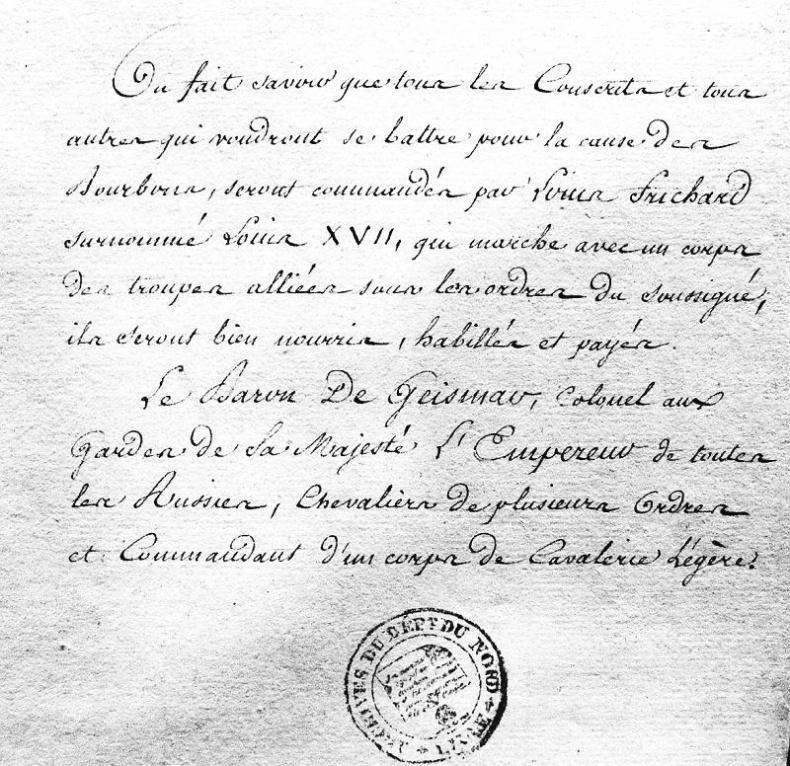 On fait savoir que tous les Conscrits et tous
autres qui voudront se battre pour la cause des
Bourbons, seront commandés par Louis Frichard
surnommé Louis XVII, qui marche avec un corps
des troupes alliées sous les ordres du soussigné,
ils seront bien nourris, habillés et payés.
Le Baron De Geismar, Colonel aux
Gardes de Sa Majesté L'Empereur de toutes
les Russies, Chevaliers de plusieurs Ordres
et Commandant d'un corps de Cavalerie Légère.
ARCHIVES DU DÉPT DU NORD
LILLE